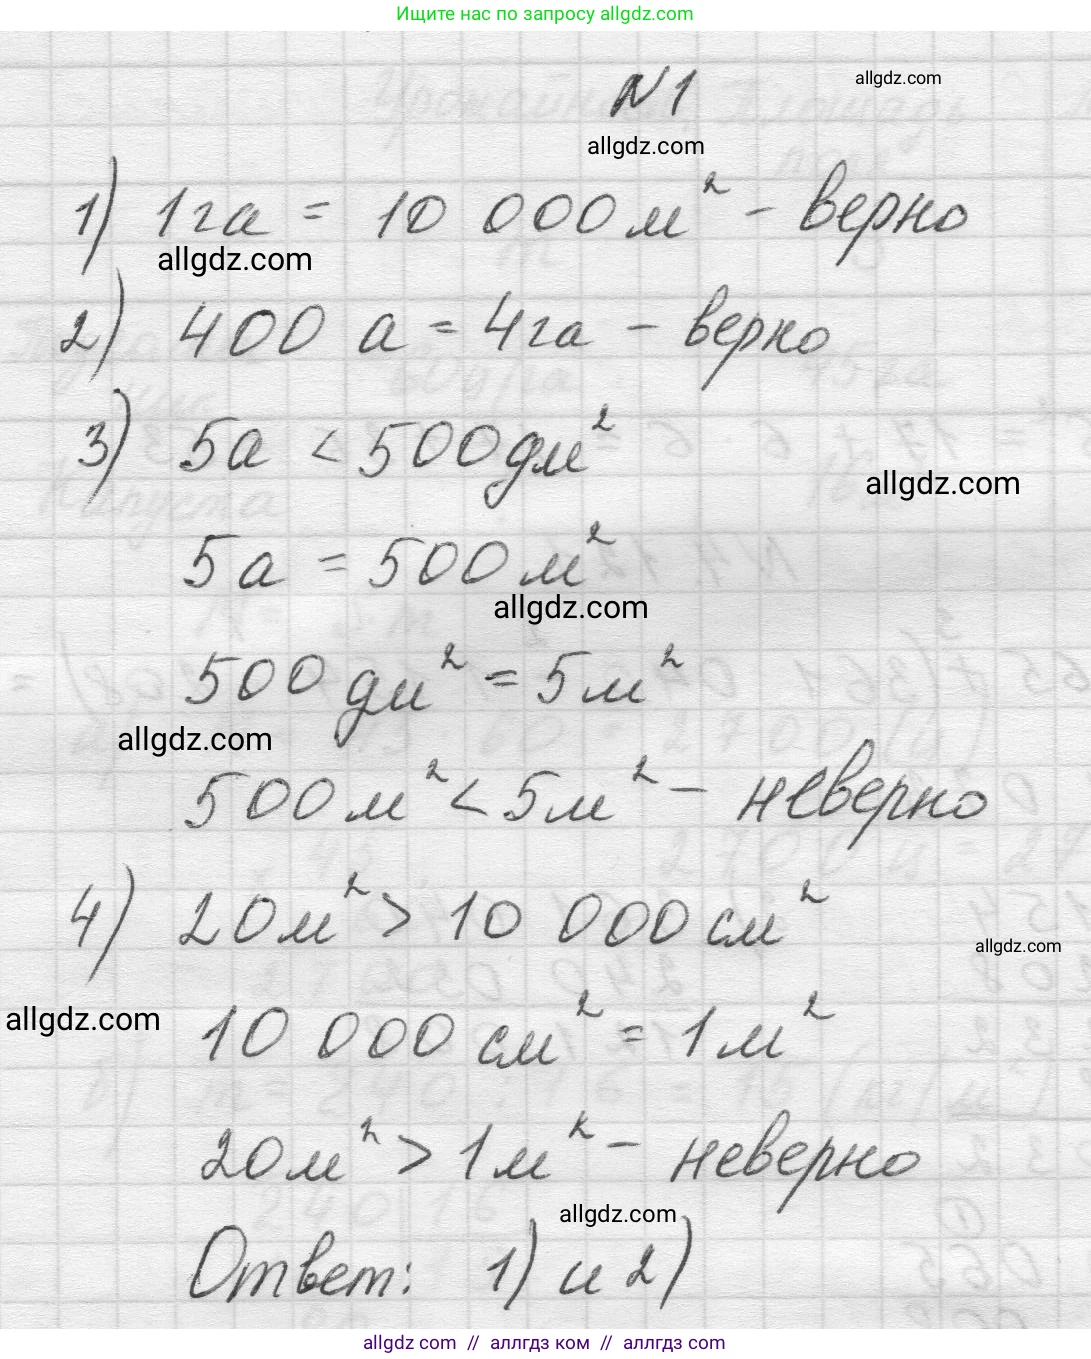 Ищите нас по запросу allgdz.com
N1
allgdz.com
allgdz.com
1) 1га = 10 000 м² - верно
allgdz.com
2) 400 а = 4га - верно
3) 5а < 500 дм²
allgdz.com
5а = 500 м²
allgdz.com
500 дм² = 5 м²
allgdz.com
500 м² < 5 м² - неверно
4) 20 м² > 10 000 см²
allgdz.com
allgdz.com
10 000 см² = 1 м²
20 м² > 1 м² - неверно
allgdz.com
Ответ: 1) и 2)
allgdz.com // аллгдз ком // аллгдз.com